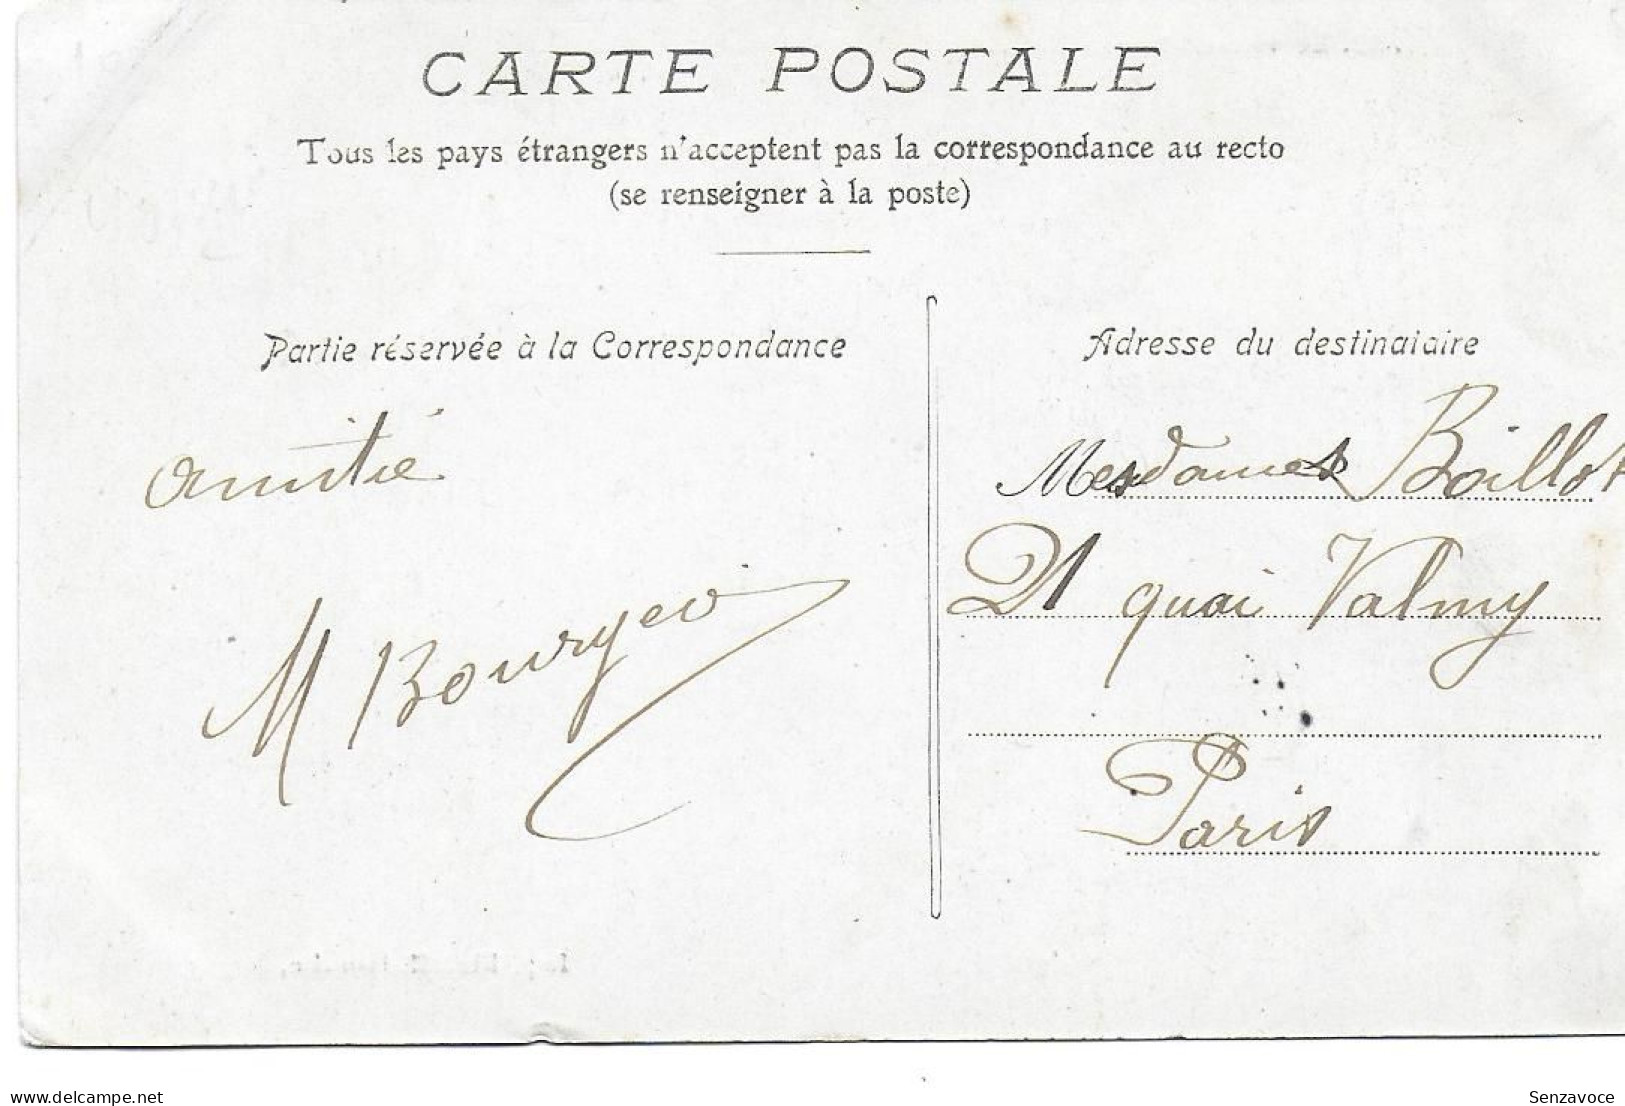 CARTE POSTALE
Tous les pays étrangers n'acceptent pas la correspondance au recto
(se renseigner à la poste)
Partie réservée à la Correspondance
Adresse du destinataire
amitié
M Bourgeois
Mesdames Boillot
21 quai Valmy
Paris
www.delcampe.net
Senzavoce